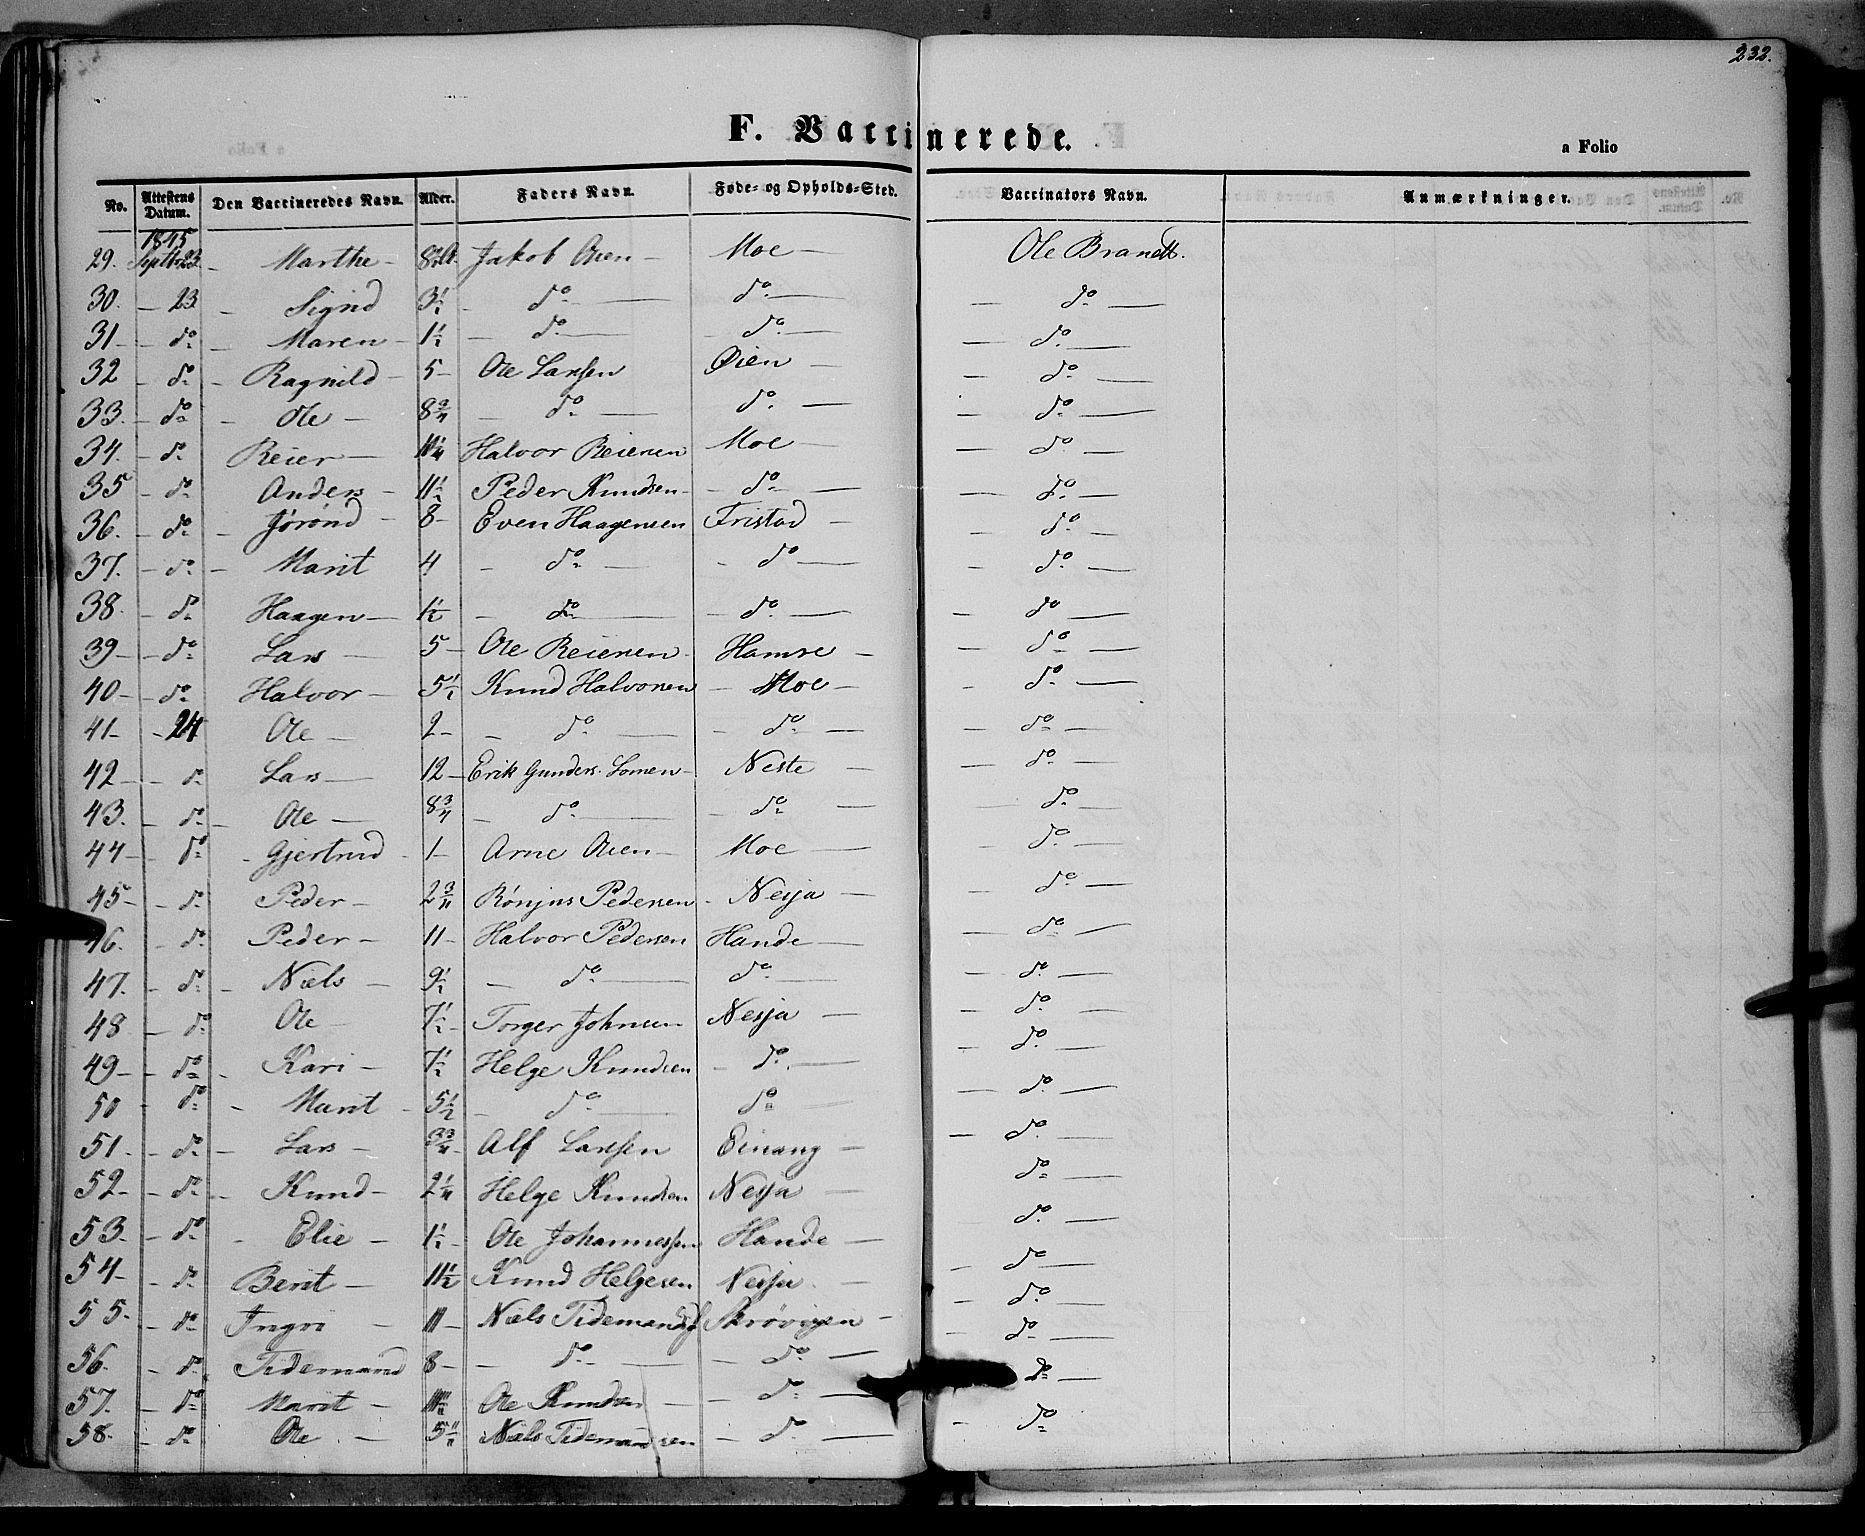 232.
F. Vaccinerede.
a Folio
No. Attestens Datum. Den Vaccineredes Navn. Alder. Faders Navn. Føde- og Opholds-Sted. Vaccinators Navn. Anmærkninger.
1845
29. Septb. 23. - Marthe - Jakob Olsen - Moe - Ole Brandt.
30. - 23 - Sigrid 3½ - do - do - - do -
31 - do - Maren - 1½ - do - do - - do -
32 - do - Ragnild - 5 - Ole Larssen Øien - - do -
33. - do - Ole - 8¾ - do - do - - do -
34. - do Reier - 11¼ Halvor Reiersen Moe - - do -
35 - do - Anders - 11½ Peder Knudsen - - do - - do -
36. - do - Jørønd - 8 - Even Haagensen Fristad - - do -
37. - do - Marit 4 - do - - do - - do -
38. - do Haagen - 1½ - do - - do - - do -
39 - - do - Lars - 5 - Ole Reiersen - Hamre - - do -
40 - - do - Halvor - 5½ Knud Halvorsen - Moe - - do -
41 - - 24 Ole - 2 - - do - - do - - do -
42 - - do - Lars - 12 - Erik Gunders. Lomen - Neste - - do -
43. - do - Ole - 8¾ - do - do - - do -
44 - - do - Gjertrud - 1 - Arne Olsen - Moe - - do -
45 - - do - Peder - 2¾ Rønjus Pedersen - Nesja - - do -
46. - do - Peder - 11 - Halvor Pedersen Hande - - do -
47. - do - Niels - 9½ - do - do - - do -
48 - do - Ole - 7½ - Torger Johnsen Nesja - - do -
49 - - do - Kari - 7½ Helge Knudsen - do - - do -
50 - do - Marit - 5½ - do - do - - do -
51. - do - Lars - 3¾ - Alf Larssen Einang - - do -
52 - - do - Knud - 2¼ Helge Knudsen Nesja - - do -
53. - do - Elie - 1½ - Ole Johannessen Hande - - do -
54 - - do - Berit - 11½ Knud Helgesen Nesja - - do -
55. - do - Ingri - 11 - Niels Tidemands Skrøvigen - - do -
56. - do - Tidemand 8 - - do - - do - - do -
57. - do - Marit - Ole Knudsen - - do - - do -
58. - do - Ole - Niels Tidemandsen - do - - do